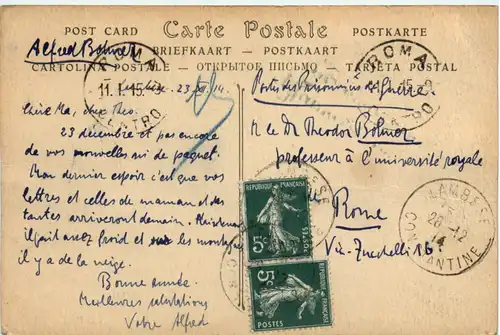 POST CARD Carte Postale POSTKARTE
BRIEFKAART — POSTKAART
CARTOLINA POSTALE — ОТКРЫТОЕ ПИСЬМО — TARJETA POSTAL
Alfred Bohner
23 XII 14
Chère Ma, cher Theo.
23 décembre et pas encore
de vos nouvelles ni de paquet.
Mon dernier espoir c'est que vos
lettres et celles de maman et des
tantes arriveront demain. Maintenant
il fait assez froid et sur les montagnes
il y a de la neige.
Bonne année.
Meilleures salutations
Votre Alfred
Postes des Prisonniers de Guerre.
M le Dr Theodor Bohner
professeur à l'université royale
Rome
Via
16
ROMA
11.1.15
CENTRO
ROMA
15
CENTRO
REPUBLIQUE FRANÇAISE
5c
POSTES
5c
POSTES
LAMBESE
26-12
14
CONSTANTINE